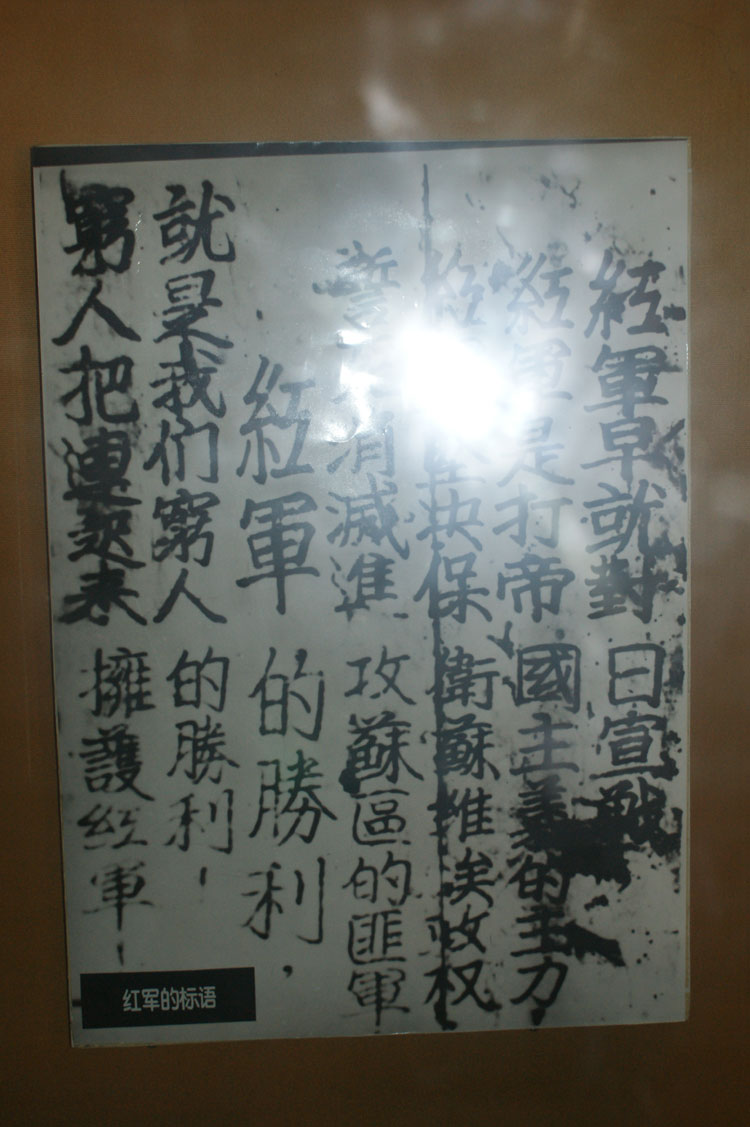 紅軍早就對日宣戰
紅軍是打帝國主義的主力
紅堅決保衛蘇維埃政权
誓消滅進攻蘇區的匪軍
紅軍的勝利，
就是我们窮人的勝利！
窮人把連起来擁護紅軍！
红军的标语